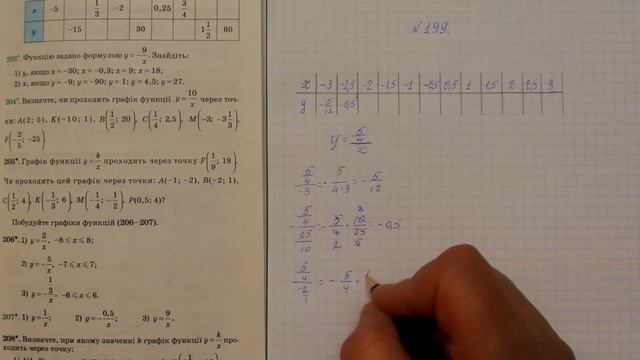 x -5 1/3 -2 0,25 3/4
y -15 30 1 1/2 60
203°. Функцію задано формулою y = - 9/x. Знайдіть:
1) y, якщо x = -30; x = -0,3; x = 9; x = 18;
2) x, якщо y = -9; y = -90; y = 1; y = 4,5; y = 27.
204°. Визначте, чи проходить графік функції y = 10/x через точ-
ки: A(2; 5), K(-10; 1), B(1/2; 20), C(1/4; 2,5), M(-3; -3 1/3),
F(-2/5; -25).
205°. Графік функції y = k/x проходить через точку F(1/9; 18).
Чи проходить цей графік через точки: A(-1; -2), B(-2; 1),
C(1/2; 4), K(-1/3; 6), M(-1/4; -1/2), P(0,5; 4)?
Побудуйте графіки функцій (206–207).
206°. 1) y = 2/x, -8 ⩽ x ⩽ 8;
2) y = -5/x, -7 ⩽ x ⩽ 7;
3) y = -3/x, -6 ⩽ x ⩽ 6.
207°. 1) y = 1/x; 2) y = -0,5/x; 3) y = 9/x.
208°. Визначте, при якому значенні k графік функції y = k/x про-
ходить через точку:
№199.
x -3 -2,5 -2 -1,5 -1 -0,5 0,5 1 1,5 2 2,5 3
y -5/12 -0,5
y = 5/4 / x
5/4 / -3 = - 5/4·3 = - 5/12
- 5/4 / 25/10 = - 5/4 · 10/25 = -0,5
5/4 / -2/1 = - 5/4 · 1